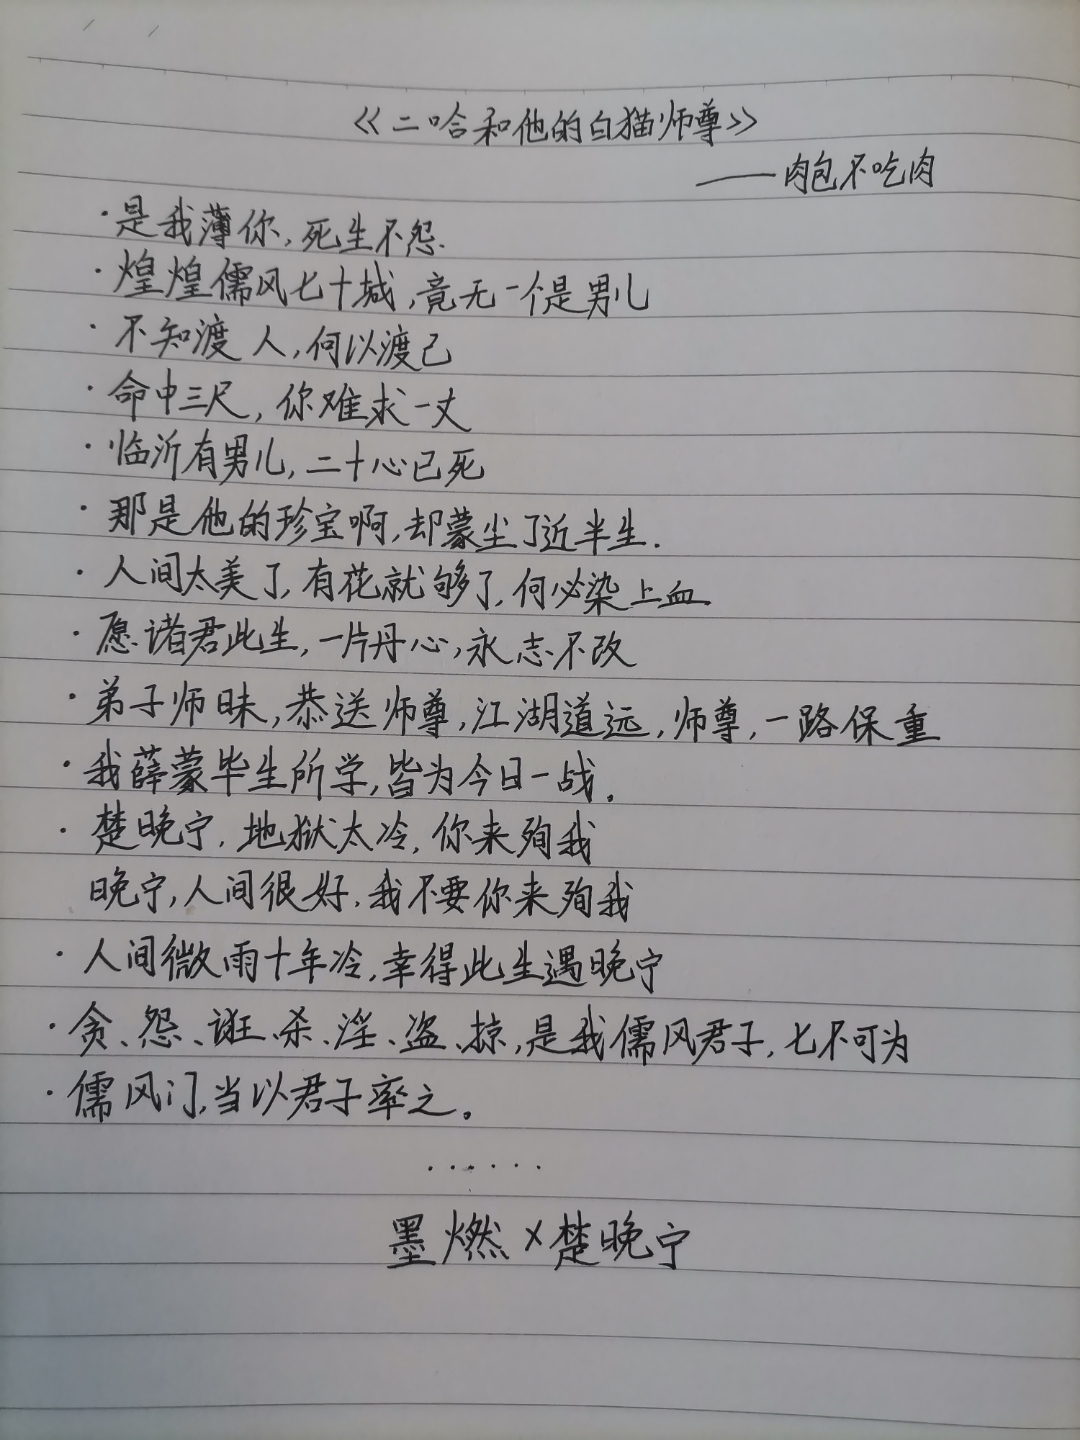 《二哈和他的白猫师尊》
——肉包不吃肉
·是我薄你,死生不怨.
·煌煌儒风七十城,竟无一个是男儿
·不知渡人,何以渡己
·命中三尺,你难求一丈
·临沂有男儿,二十心已死
·那是他的珍宝啊,却蒙尘了近半生.
·人间太美了,有花就够了,何必染上血
·愿诸君此生,一片丹心,永志不改
·弟子师昧,恭送师尊,江湖道远,师尊,一路保重
·我薛蒙毕生所学,皆为今日一战。
·楚晚宁,地狱太冷,你来殉我
晚宁,人间很好,我不要你来殉我
·人间微雨十年冷,幸得此生遇晚宁
·贪、怨、诳、杀、淫、盗、掠,是我儒风君子,七不可为
·儒风门,当以君子率之。
······
墨燃×楚晚宁